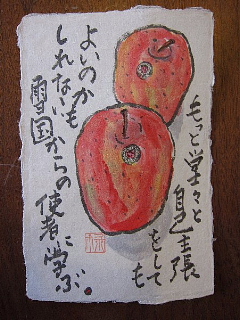 もっと堂々と
自己主張
をして
も
よいのか
も
しれない
雪国からの
使者に学ぶ